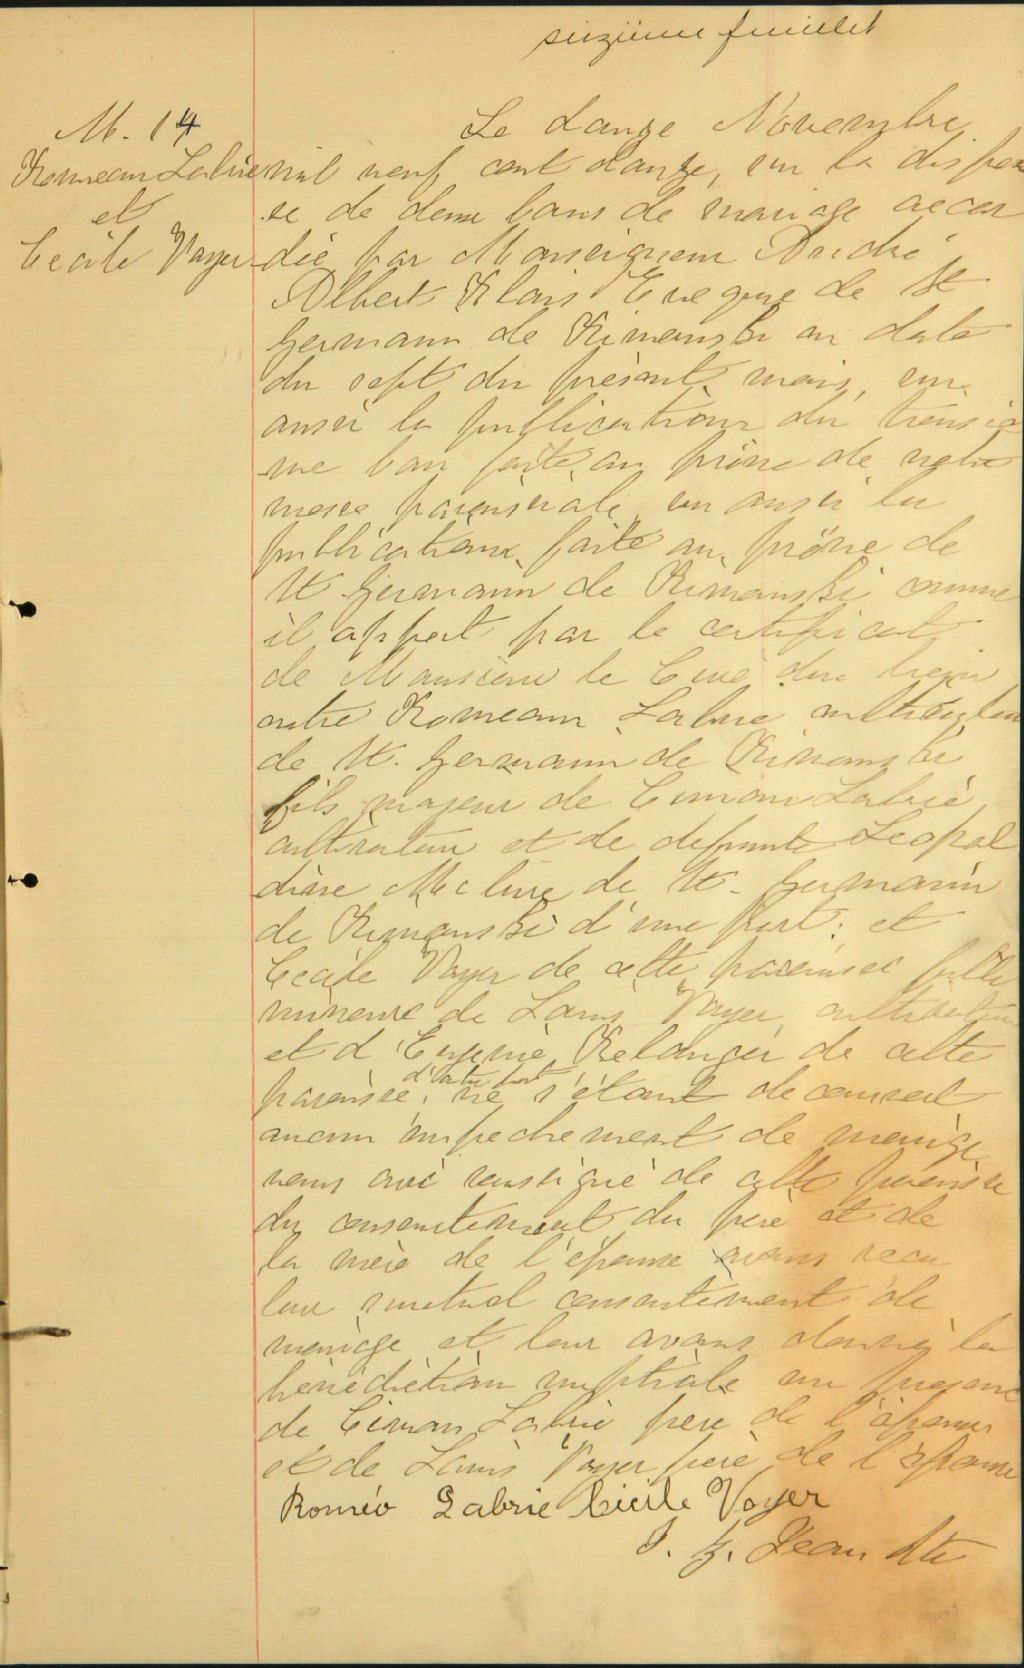 seizième feuillet
M. 14
Romeau Labrie
et
Cecile Voyer
Le douze Novembre
mil neuf cent douze, vu la dispen
se de deux bans de mariage accor
dée par Monseigneur André
Albert Blais Eveque de St
Germain de Rimouski en date
du sept du présent mois, vu
aussi la publication du troisiè
me ban faite au prône de notre
messe paroissiale, vu aussi les
publications faite au prône de
St. Germain de Rimouski comme
il appert par le certificat
de Monsieur le Curé du lieu,
entre Romeau Labrie cultivateur
de St. Germain de Rimouski
fils majeur de Cimon Labrie,
cultivateur et de defunte Leopol
dine Mc lure de St. Germain
de Rimouski d'une part; et
Cecile Voyer de cette paroisse fille
mineure de Louis Voyer, cultivateur
et d'Eugenie Belanger de cette
paroisse, d'autre part, ne s'étant decouvert
aucun empechement de mariage
nous curé soussigné de cette paroisse
du consentement du père et de
la mère de l'épouse avons recu
leur mutuel consentement de
mariage et leur avons donné la
bénédiction nuptiale en presence
de Cimon Labrie pere de l'époux
et de Louis Voyer père de l'épouse
Roméo Labrie Cécile Voyer
J. Jean Ptre